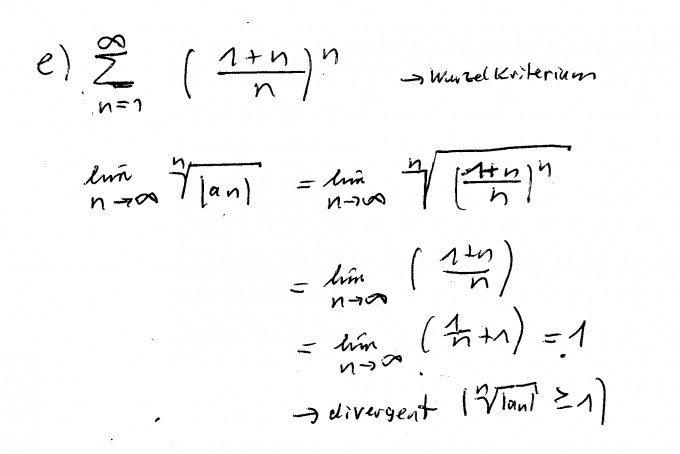 e) ∑_{n=1}^{∞} ( (1+n)/n )^n → Wurzelkriterium
lim_{n→∞} ⁿ√|an| = lim_{n→∞} ⁿ√( (1+n)/n )^n
= lim_{n→∞} ( (1+n)/n )
= lim_{n→∞} ( 1/n + 1 ) = 1
→ divergent ( ⁿ√|an| ≥ 1 )